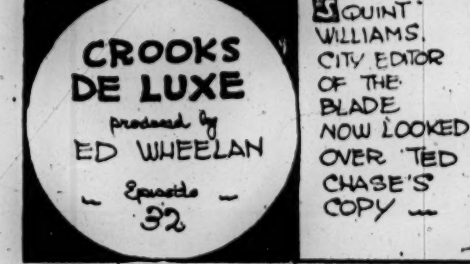 CROOKS
DE LUXE
produced by
ED WHEELAN
Episode
32
SQUINT
WILLIAMS,
CITY EDITOR
OF THE
BLADE
NOW LOOKED
OVER TED
CHASE'S
COPY